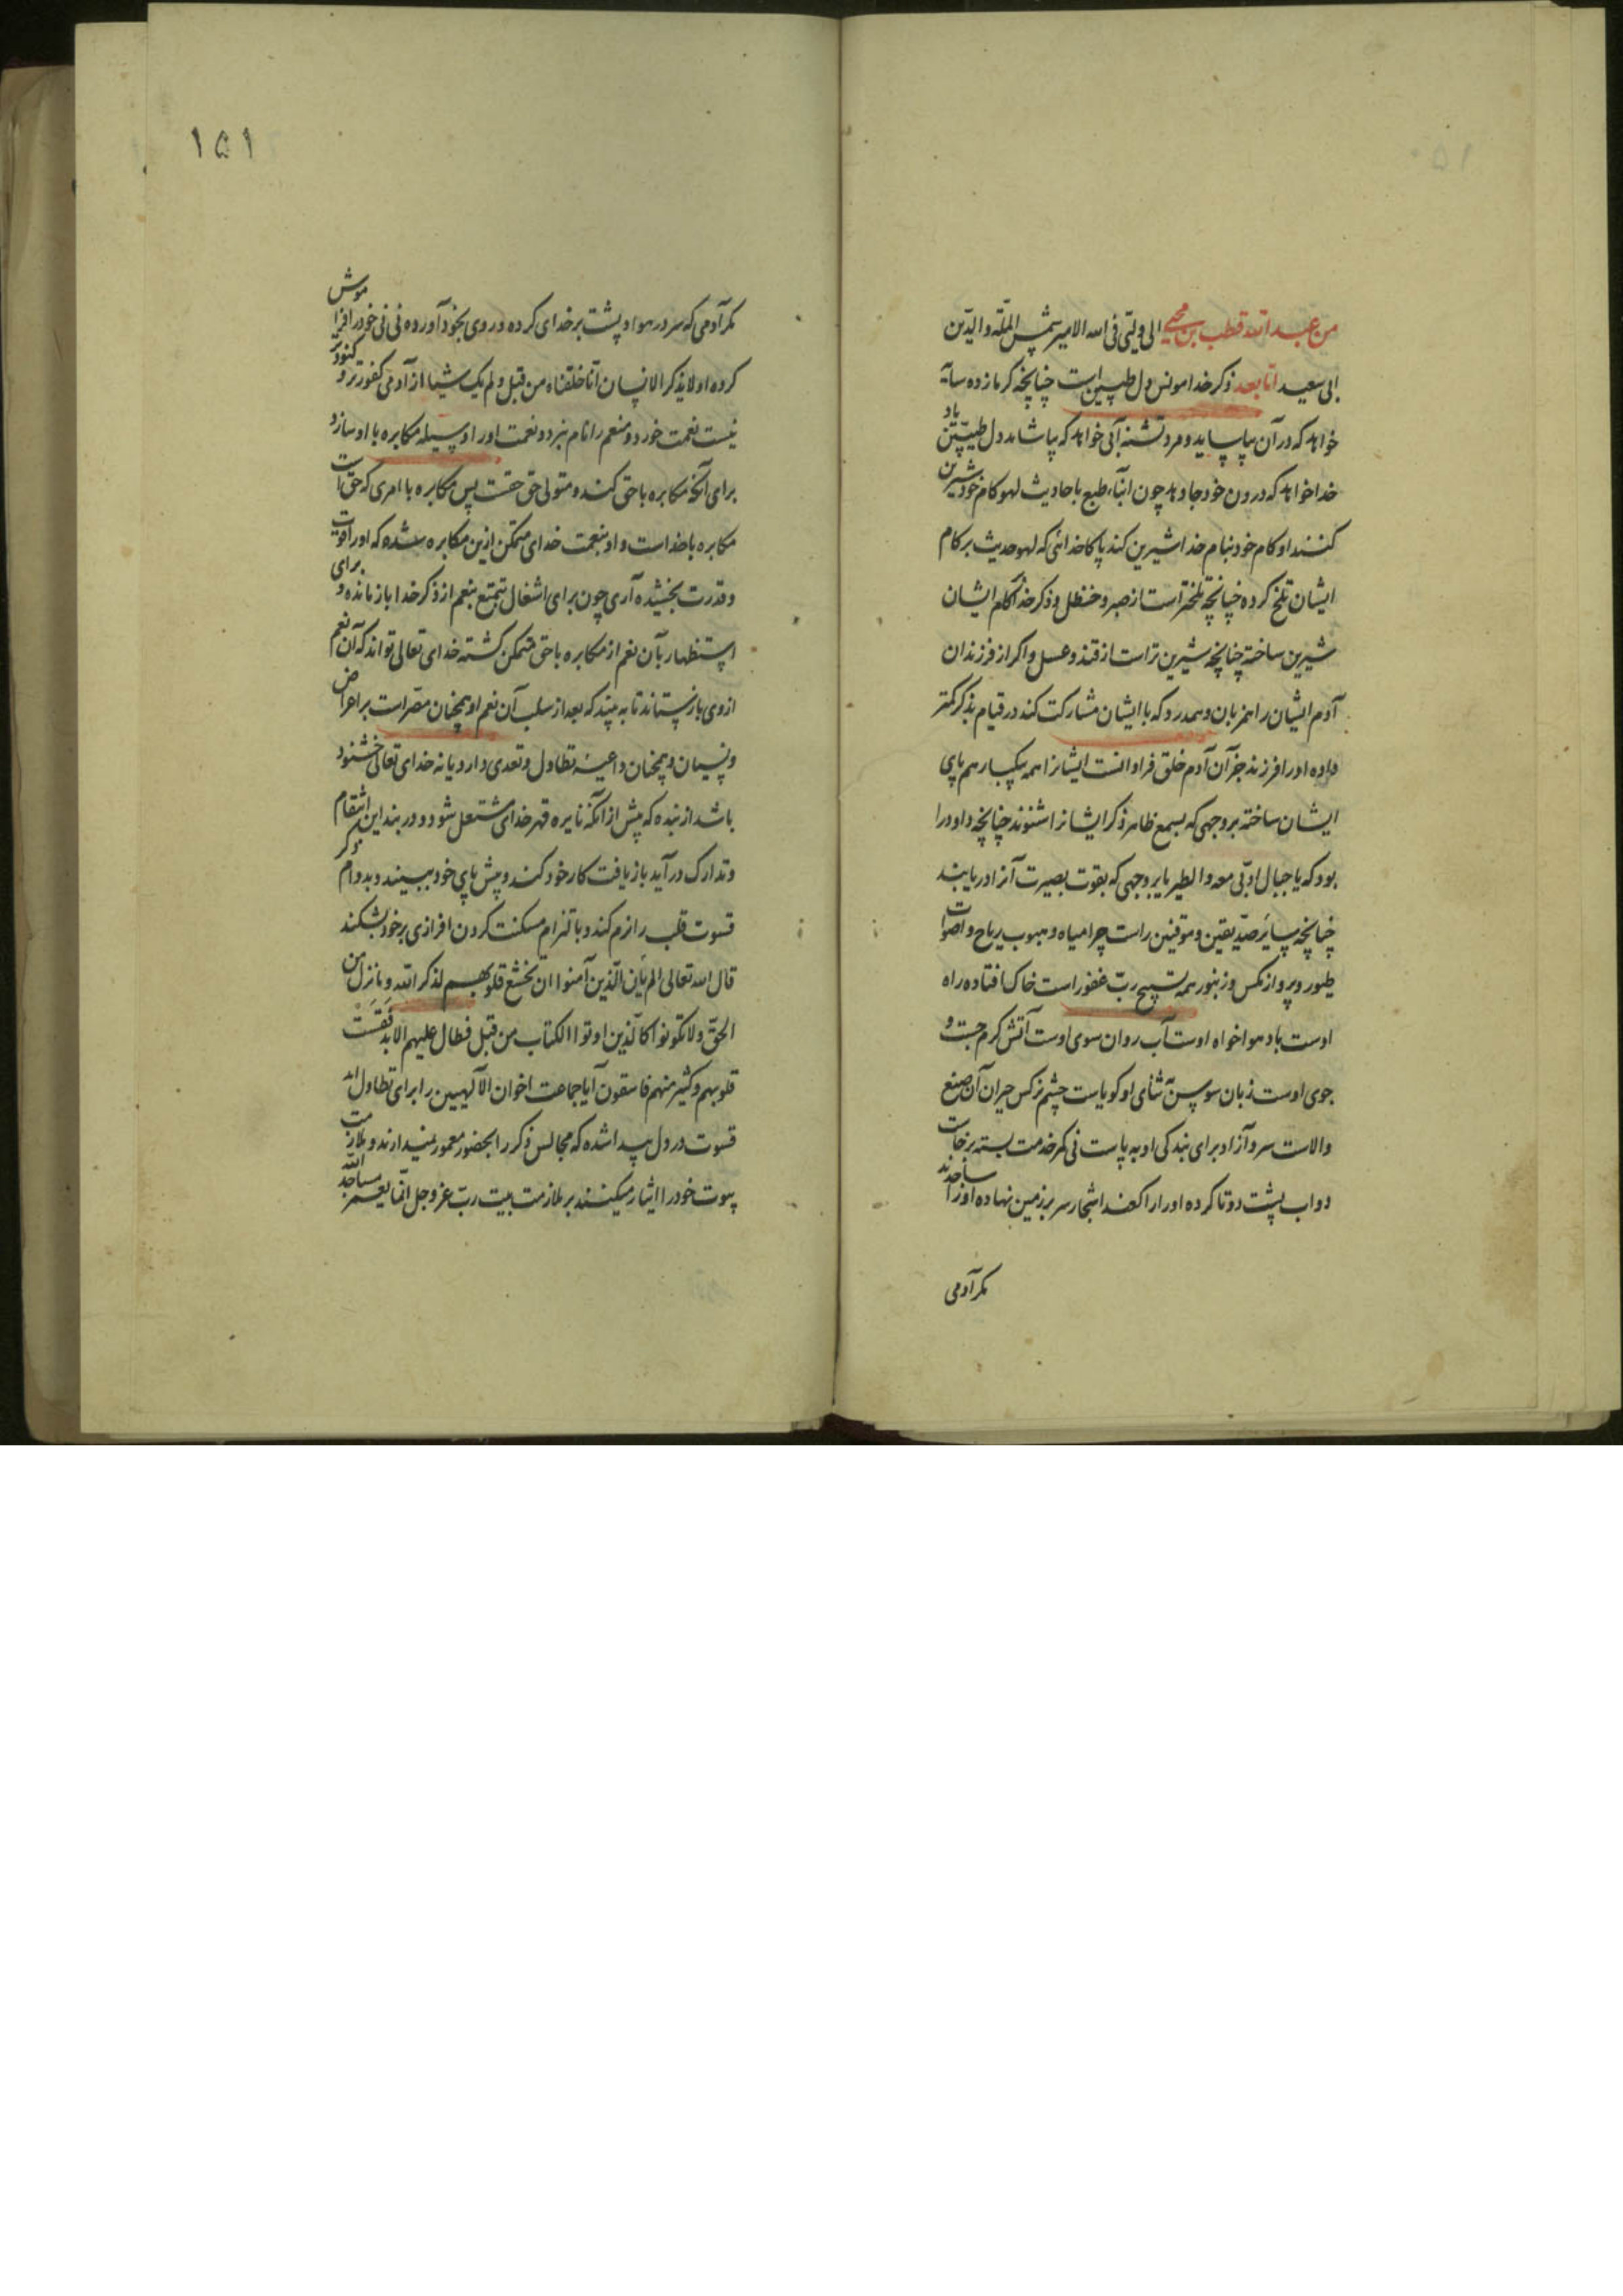 من عبد الله قطب بن محیی الی ولیتی فی الله الامیر شمس الملّة والدّین
ابی سعید اما بعد ذکر خدا مونس دل طپیین است چنانچه گرمازده سایه
خواهد که در آن بیاساید و مرد تشنه آبی خواهد که بیاشامد دل طیبین یاد
خدا خواهد که درون خود جا دهد چون ابناء طبع باحادیث لهو کام خود شیرین
کنند او کام خود بنام خدا شیرین کند پاکا خدائی که لهو حدیث بر کام
ایشان تلخ کرده چنانچه تلختر است از صبر و حنظل و ذکر خدا بکام ایشان
شیرین ساخته چنانچه شیرین تر است از قند و عسل و اکر از فرزندان
آدم ایشان را همزبان و همدرد که با ایشان مشارکت کند در قیام بذکر کمتر
داده او را فرزند جز آن آدم خلق فراوانست ایشانرا همه یکبار هم پای
ایشان ساخته بر وجهی که بسمع ظاهر ذکر ایشانرا شنوند چنانچه داود را
بود که یا جبال اوّبی معه والطیر یا بر وجهی که بقوت بصیرت آنرا دریابند
چنانچه سایر صدّیقین و موقنین راست چرا میاه و هبوب ریاح و اصوات
طیور و پرواز مکس و زنبور همه تسبیح ربّ غفور است خاک افتاده راه
اوست باد هواخواه اوست آب روان سوی اوست آتش کرم جست و
جوی اوست زبان سوسن ثنای او کویاست چشم نرکس حیران آن صنع
والاست سرو آزاد برای بندکی او به پاست نی کمر خدمت بسته برخاست
دواب پشت دوتا کرده او را راکعند اشجار سر بر زمین نهاده او را ساجدند
مکر آدمی
۱۵۱
مکر آدمی که سر در هوا و پشت بر خدای کرده و روی بخود آورده نی نی خود را فراموش
کرده اولا یذکر الانسان انا خلقناه من قبل ولم یک شیا از آدمی کفورتر و کنودتر
نیست نعمت خورد و منعم را نام نبرد و نعمت او را وسیله مکابره با او سازد
برای آنکه مکابره با حق کند و متولی حق حقست پس مکابره با امری که حق است
مکابره با خداست و او بنعمت خدای متمکن ازین مکابره شده که او را قوت
و قدرت بخشیده آری چون برای اشغال تمتع بنعم از ذکر خدا بازمانده و برای
استظهار بآن نعم از مکابره با حق متمکن کشته خدای تعالی تواند که آن نعم
از وی بازستاند تا به بیند که بعد از سلب آن نعم او همچنان مصر است بر اعراض
و نسیان و همچنان داعیه تطاول و تعدی دارد یا نه خدای تعالی خشنود
باشد از بنده که پیش از آنکه نایره قهر خدای مشتعل شود و در بند این انتقام
و تدارک درآید بازیافت کار خود کند و پیش پای خود ببیند و بدوام ذکر
قسوت قلب را نرم کند و بالتزام مسکنت کردن افرازی بر خود بشکند
قال الله تعالی الم یأن للّذین آمنوا ان تخشع قلوبهم لذکر الله وما نزل من
الحقّ ولا تکونوا کالّذین اوتوا الکتاب من قبل فطال علیهم الامد فقست
قلوبهم وکثیر منهم فاسقون آیا جماعت اخوان الآلهیین را برای تطاول امد
قسوت در دل پیدا شده که مجالس ذکر را بحضور معمور نمیدارند و ملازمت
بیوت خود را ایثار میکنند بر ملازمت بیت ربّ عز و جل انّما یعمر مساجد الله